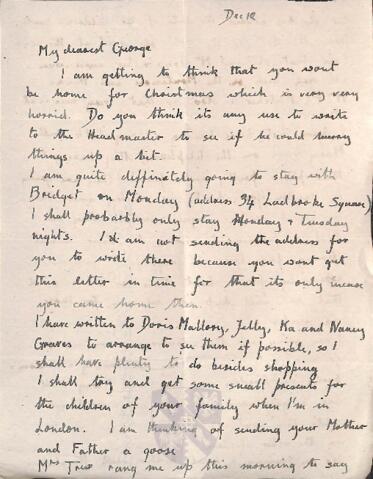 Dec 12
My dearest George
I am getting to think that you wont
be home for Christmas which is very very
horrid. Do you think its any use to write
to the Headmaster to see if he could hurry
things up a bit.
I am quite deffinately going to stay with
Bridget on Monday (address 34 Ladbroke Square)
I shall probarbly only stay Monday & Tuesday
nights. I am not sending the address for
you to write there because you wont get
this letter in time for that its only incase
you came home then.
I have written to Doris Mallory, Jelly, Ka and Nancy
Graves to arrange to see them if possible, so I
shall have plenty to do besides shopping
I shall try and get some small presents for
the children of your family when I'm in
London. I am thinking of sending your Mother
and Father a goose
Mrs rang me up this morning to say